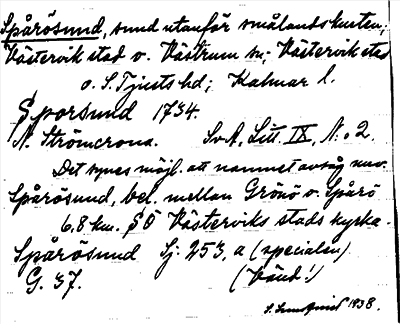 Spårösund, sund utanför smålandskusten;
Västervik stad o. Västrum sn; Västervik stad
o. S. Tjusts hd; Kalmar l.
Sporsund 1734.
N. Strömcrona. SvA, Litt. IX, N:o 2.
Det synes möjl. att namnet avsåg nuv.
Spårösund, bel. mellan Grönö o. Spårö
6,8 km. SÖ Västerviks stads kyrka.
Spårösund Sj: 253, a (specialen)
G. 37. (Vänd!)
S. 1938.